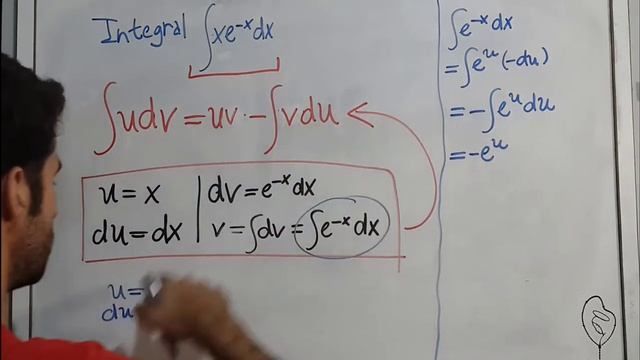 Integral ∫xe⁻ˣdx
∫udv=uv-∫vdu
u=x | dv=e⁻ˣdx
du=dx | v=∫dv=∫e⁻ˣdx
u=
du
∫e⁻ˣdx
=∫eᵘ(-du)
=-∫eᵘdu
=-eᵘ